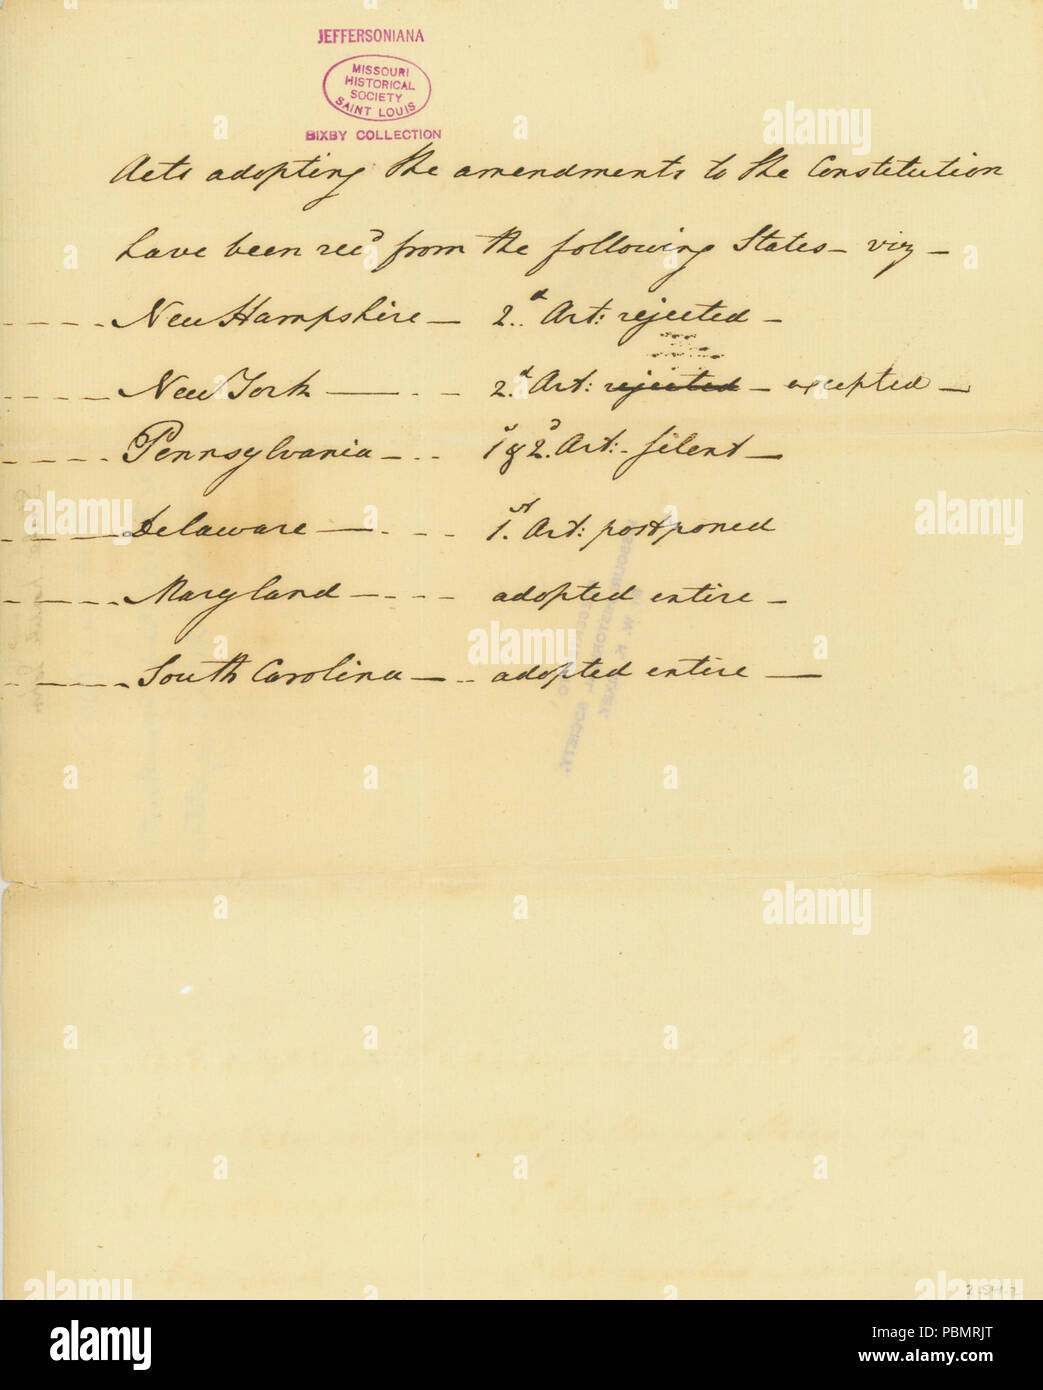 JEFFERSONIANA
MISSOURI
HISTORICAL
SOCIETY
SAINT LOUIS
BIXBY COLLECTION
Acts adopting the amendments to the Constitution
have been recd from the following States — viz —
New Hampshire — 2.d Art: rejected —
New York — 2.d Art: rejected — excepted —
Pennsylvania — 1 & 2.d Art: silent —
Delaware — 1.st Art: postponed
Maryland — adopted entire —
South Carolina — adopted entire —
alamy
a
Image ID: PBMRJT
www.alamy.com